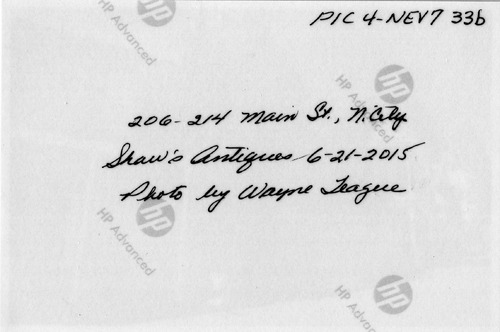 PIC 4-NEV7 33b
206-214 Main St., N. City
Shaw's Antiques 6-21-2015
Photo by Wayne League
hp
HP Advanced
hp
HP Advanced
hp
HP Advanced
hp
HP Advanced